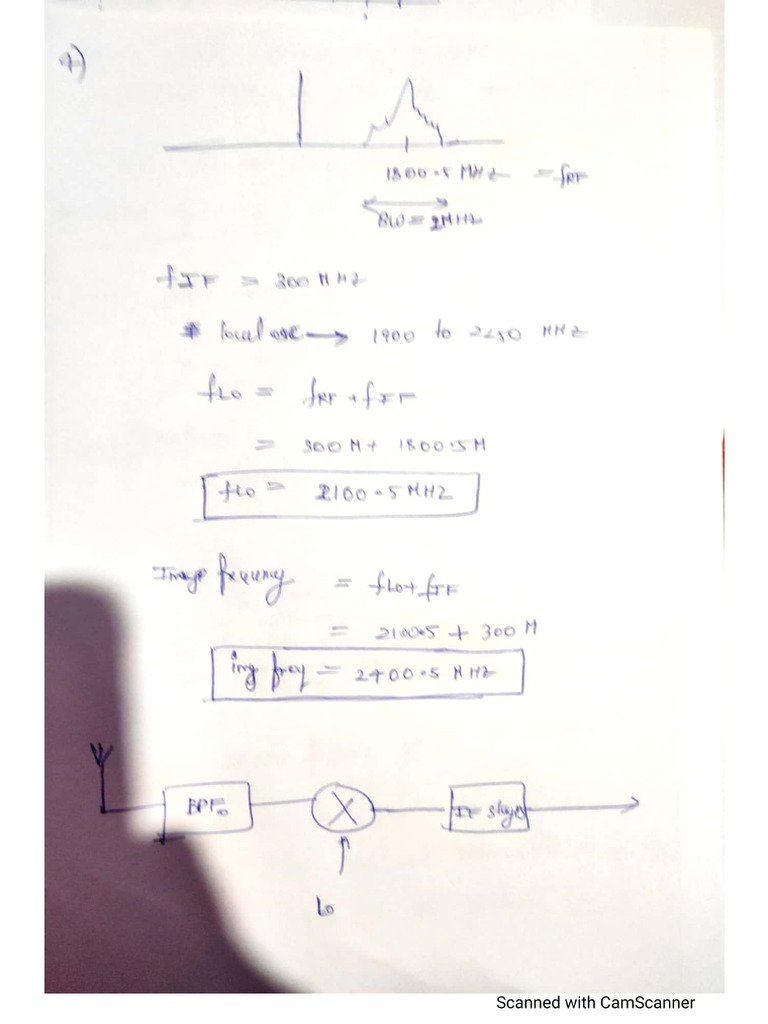 4)
1800.5 MHz = fRF
BW = 2MHz
fIF = 300 MHz
* local osc → 1900 to 2250 MHz
fLO = fRF + fIF
= 300 M + 1800.5 M
fLO = 2100.5 MHz
Image frequency = fLO + fIF
= 2100.5 + 300 M
img freq = 2400.5 MHz
BPF
X
IF stage
Lo
Scanned with CamScanner